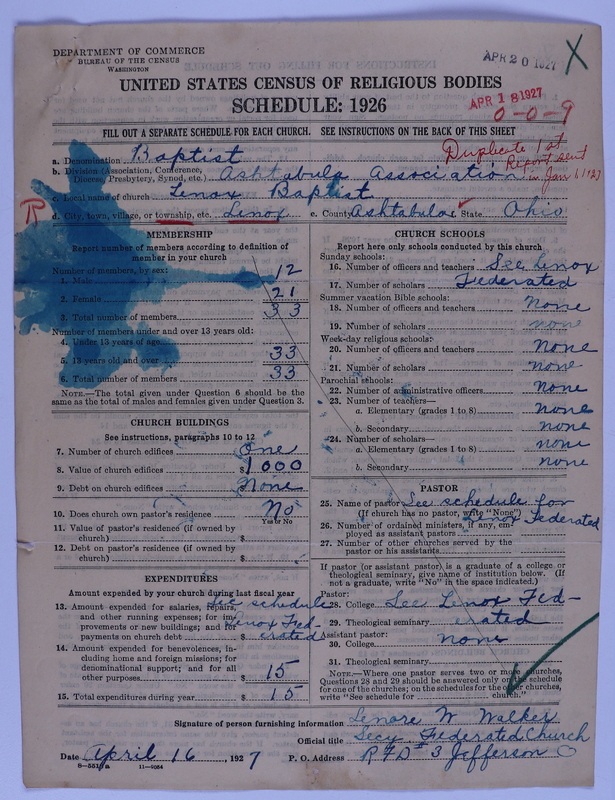 DEPARTMENT OF COMMERCE
BUREAU OF THE CENSUS
WASHINGTON
APR 20 1927
X
UNITED STATES CENSUS OF RELIGIOUS BODIES
SCHEDULE: 1926
APR 18 1927
0-0-9
FILL OUT A SEPARATE SCHEDULE FOR EACH CHURCH. SEE INSTRUCTIONS ON THE BACK OF THIS SHEET
Duplicate 1st
Report sent
in Jan
a. Denomination Baptist
b. Division (Association, Conference, Diocese, Presbytery, Synod, etc.) Ashtabula Association
c. Local name of church Lenox Baptist
R
d. City, town, village, or township, etc. Lenox e. County Ashtabula State Ohio
MEMBERSHIP
Report number of members according to definition of
member in your church
Number of members, by sex:
1. Male 12
2. Female 21
3. Total number of members 33
Number of members under and over 13 years old:
4. Under 13 years of age
5. 13 years old and over 33
6. Total number of members 33
NOTE.—The total given under Question 6 should be
same as the total of males and females given under Question 3.
CHURCH BUILDINGS
See instructions, paragraphs 10 to 12
7. Number of church edifices One
8. Value of church edifices $1000
9. Debt on church edifices $None
10. Does church own pastor's residence? No
Yes or No
11. Value of pastor's residence (if owned by
church) $
12. Debt on pastor's residence (if owned by
church) $
EXPENDITURES
Amount expended by your church during last fiscal year
13. Amount expended for salaries, repairs,
and other running expenses; for im-
provements or new buildings; and for
payments on church debt
See schedule
Lenox Fed-
erated
14. Amount expended for benevolences, in-
cluding home and foreign missions; for
denominational support; and for all
other purposes $15
15. Total expenditures during year $15
CHURCH SCHOOLS
Report here only schools conducted by this church
Sunday schools:
16. Number of officers and teachers See Lenox
17. Number of scholars Federated
Summer vacation Bible schools:
18. Number of officers and teachers None
19. Number of scholars none
Week-day religious schools:
20. Number of officers and teachers None
21. Number of scholars None
Parochial schools:
22. Number of administrative officers None
23. Number of teachers—
a. Elementary (grades 1 to 8) None
b. Secondary None
24. Number of scholars—
a. Elementary (grades 1 to 8) none
b. Secondary none
PASTOR
25. Name of pastor See schedule for
(If church has no pastor, write "None") Lenox Federated
26. Number of ordained ministers, if any, em-
ployed as assistant pastors
27. Number of other churches served by the
pastor or his assistants
If pastor (or assistant pastor) is a graduate of a college or
theological seminary, give name of institution below. (If
not a graduate, write "No" in the space indicated.)
Pastor:
28. College See Lenox Fed-
29. Theological seminary erated
Assistant pastor:
30. College none
31. Theological seminary
NOTE.—Where one pastor serves two or more churches,
Questions 28 and 29 should be answered only on the schedule
for one of the churches; on the schedules for the other churches,
write "See schedule for church."
Signature of person furnishing information Lenore W Walker
Official title Secy Federated Church
Date April 16, 1927 P. O. Address R F D #3 Jefferson O
11—9064